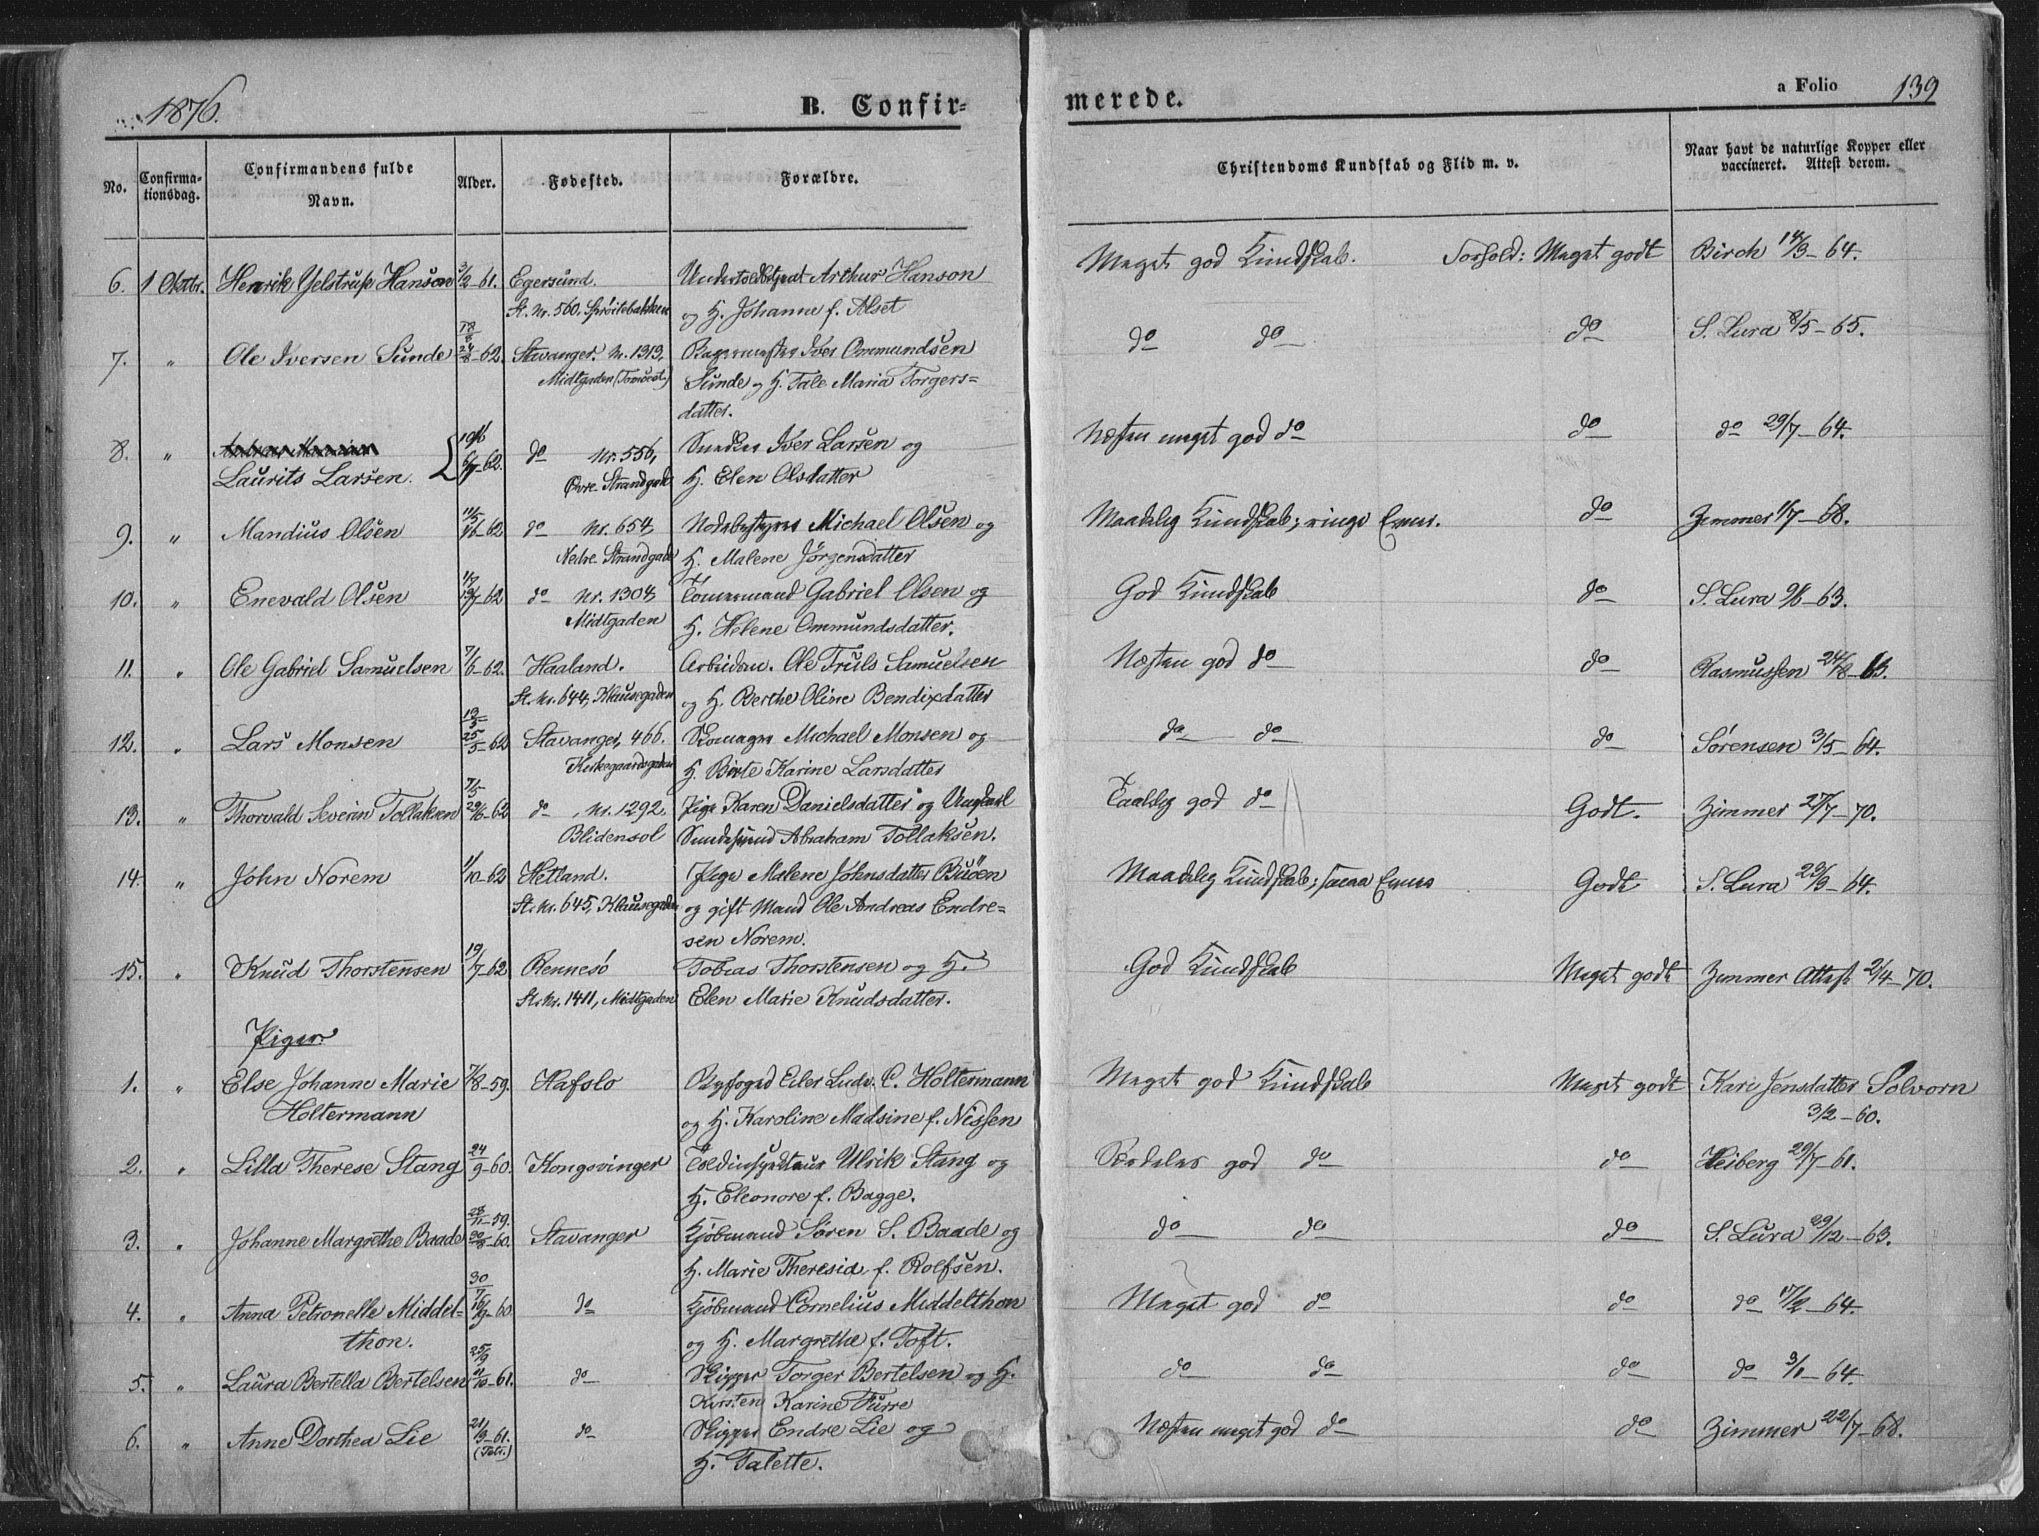 1876.
B. Confir-
merede.
a Folio 139
No.
Confirma-
tionsdag.
Confirmandens fulde
Navn.
Alder.
Fødested.
Forældre.
Christendoms Kundskab og Flid m. v.
Naar havt de naturlige Kopper eller
vaccineret. Attest derom.
6. 1 Oktbr. Henrik Yelstrup Hanson 3/2-61. Egersund. Arthur Hanson Meget god Kundskab. Forhold: Meget godt Birch 14/3-64.
St. Nr. 560, Sprøitebakken og H. Johanne f. Alset
7. " Ole Iversen Sunde 24/8-62 Stavanger. N. 1313, Bagermester Iver Ommundsen do do do S. Lura 8/5-65.
Midtgaden Sunde og H. Tale Maria Torgers=
datter.
8. " Laurits Larsen. 6/7-62. do Nr. 556, Snedker Iver Larsen og Næsten meget god do do do 29/7-64.
Øvre Strandgade H. Elen Olsdatter
9. " Mandius Olsen 62 do Nr. 654, Michael Olsen og Maadelig Kundskab; ringe Evner. do Zimmer 1/7-68.
Nedre Strandgade H. Malene Jörgensdatter
10. " Enevald Olsen 62 do Nr. 1304 Tømermand Gabriel Olsen og God Kundskab do S. Lura 63.
Midtgaden H. Helene Ommundsdatter.
11. " Ole Gabriel Samuelsen 7/6-62. Haaland. Arbeidsm. Ole Truls Samuelsen Næsten god do do Rasmussen 24/8-63.
St. Nr. 644, Klausegaden og H. Berthe Oline Bendixdatter
12. " Lars Monsen 25/5-62 Stavanger, 466. Skomager Michael Monsen og do do do Sørensen 3/5-64.
Kirkegaardsgaden H. Birte Karine Larsdatter
13. " Thorvald Severin Tollaksen 29/6-62 do Nr. 1292, Pige Karen Danielsdatter og Ungkarl Taalelig god do Godt. Zimmer 27/7-70.
Blidensol Abraham Tollaksen.
14. " John Norem 1/10-62 Hetland. Pige Malene Johnsdatter Buöen Maadelig Kundskab; svage Evner Godt S. Lura 23/9-64.
St. Nr. 645, Klausegaden og gift Mand Ole Andreas Endre=
sen Norem.
15. " Knud Thorstensen 19/7-62 Rennesö Tobias Thorstensen og H. God Kundskab Meget godt Zimmer Attest 2/4-70.
St. Nr. 1411, Midtgaden Elen Marie Knudsdatter.
Piger
1. " Else Johanne Marie 7/8-59. Hafslo Byfoged Eiler Ludv. C. Holtermann Meget god Kundskab Meget godt Kari Jensdatter Solvorn
Holtermann og H. Karoline Madsine f. Nissen 3/2-60.
2. " Lilla Therese Stang 24/9-60. Kongsvinger Toldinspekteur Ulrik Stang og Særdeles god do do Heiberg 29/7-61.
H. Eleonore f. Bagge.
3. " Johanne Margrethe Baade 28/11-59. Stavanger Kjøbmand Søren S. Baade og do do do S. Lura 29/12-63.
H. Marie Theresia f. Rolfsen.
4. " Anna Petronelle Middel- 60 do Kjøbmand Cornelius Middelthon Meget god do do do 17/2-64.
thon. og H. Margrethe f. Toft.
5. " Laura Bertella Bertelsen 61. do Skipper Torger Bertelsen og H. do do do do 3/1-64.
Kirsten Karine Furre
6. " Anne Dorthea Lie 21/3-61. do Skipper Endre Lie og Næsten meget god do do Zimmer 22/7-68.
H. Talette.